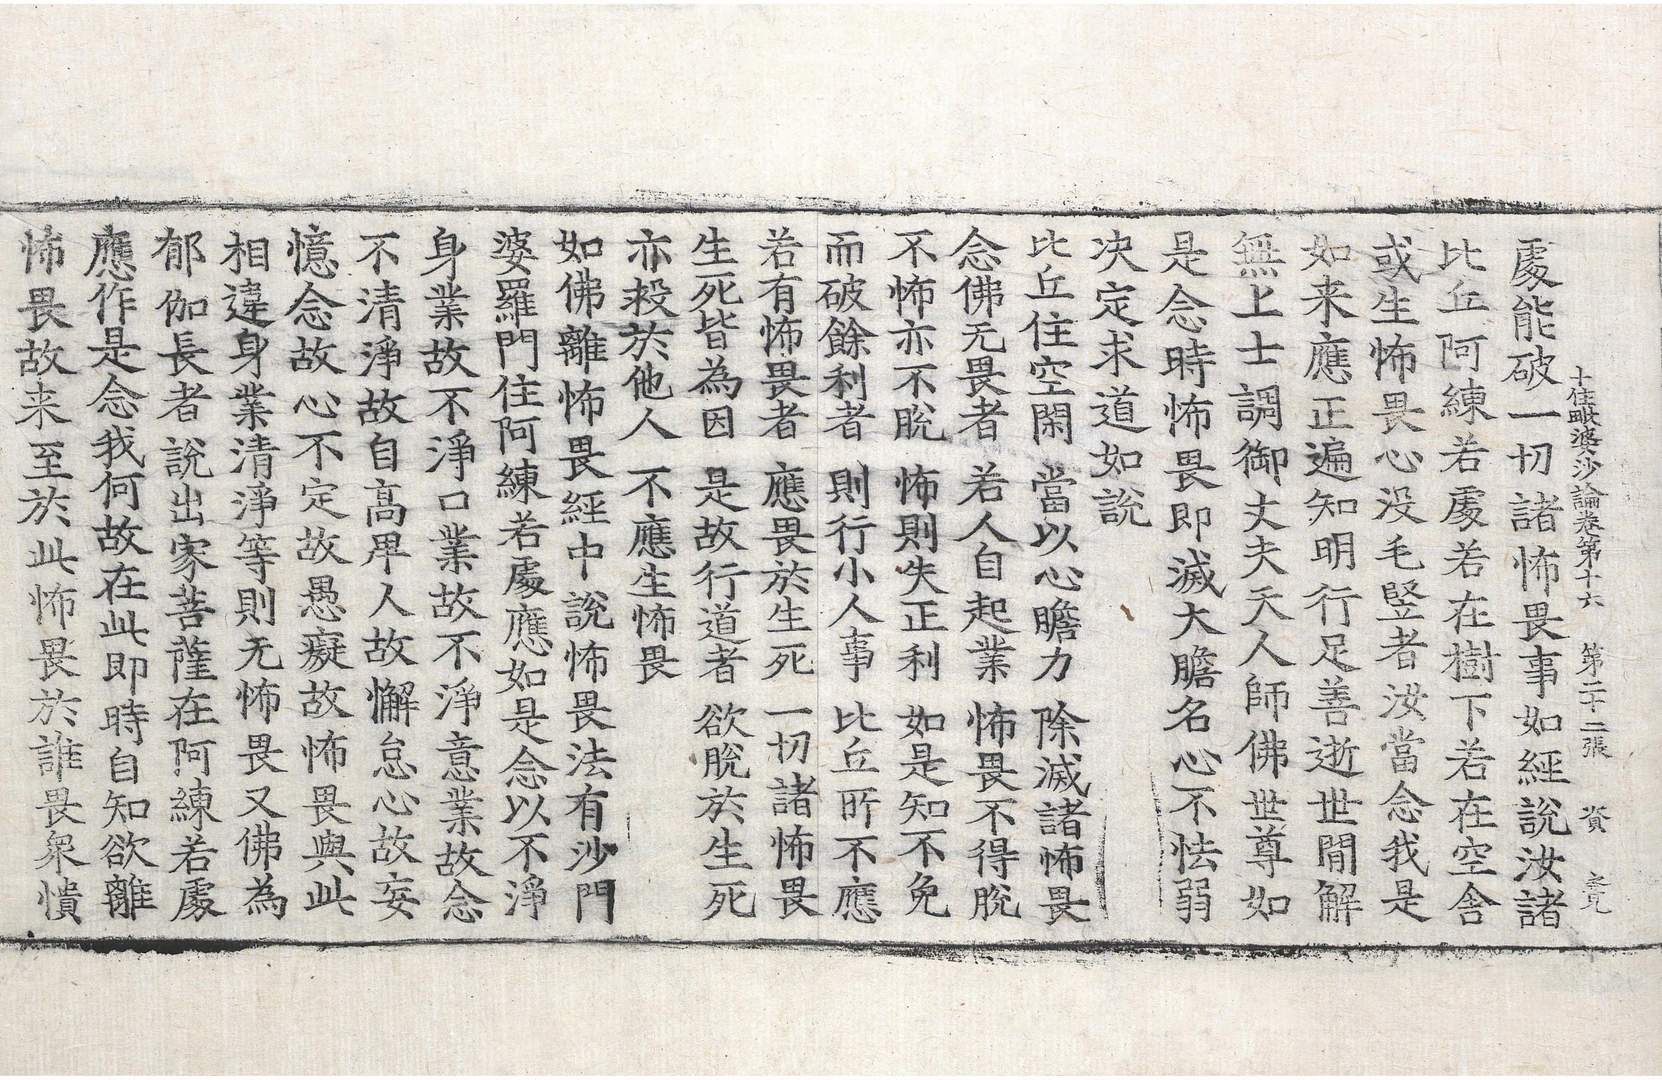 十住毗婆沙論卷第十六　第二十二張　資
處能破一切諸怖畏事如經說汝諸
比丘阿練若處若在樹下若在空舍
或生怖畏心没毛竪者汝當念我是
如来應正遍知明行足善逝世閒解
無上士調御丈夫天人師佛世尊如
是念時怖畏即滅大膽名心不怯弱
决定求道如說
比丘住空閑　當以心膽力　除滅諸怖畏
念佛无畏者　若人自起業　怖畏不得脫
不怖亦不脫　怖則失正利　如是知不免
而破餘利者　則行小人事　比丘所不應
若有怖畏者　應畏於生死　一切諸怖畏
生死皆為因　是故行道者　欲脫於生死
亦救於他人　不應生怖畏
如佛離怖畏經中說怖畏法有沙門
婆羅門住阿練若處應如是念以不淨
身業故不淨口業故不淨意業故念
不清淨故自高卑人故懈怠心故妄
憶念故心不定故愚癡故怖畏與此
相違身業清淨等則无怖畏又佛為
郁伽長者說出家菩薩在阿練若處
應作是念我何故在此即時自知欲離
怖畏故来至於此怖畏於誰畏衆憒